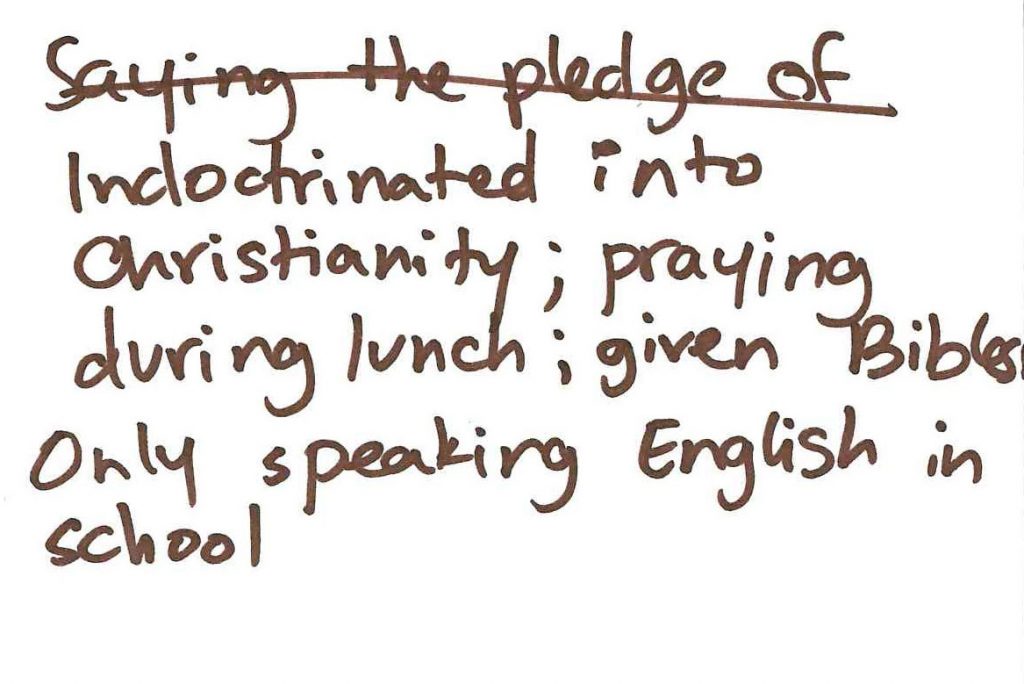 Saying the pledge of
Indoctrinated into
Christianity; praying
during lunch; given Bibles
Only speaking English in
school